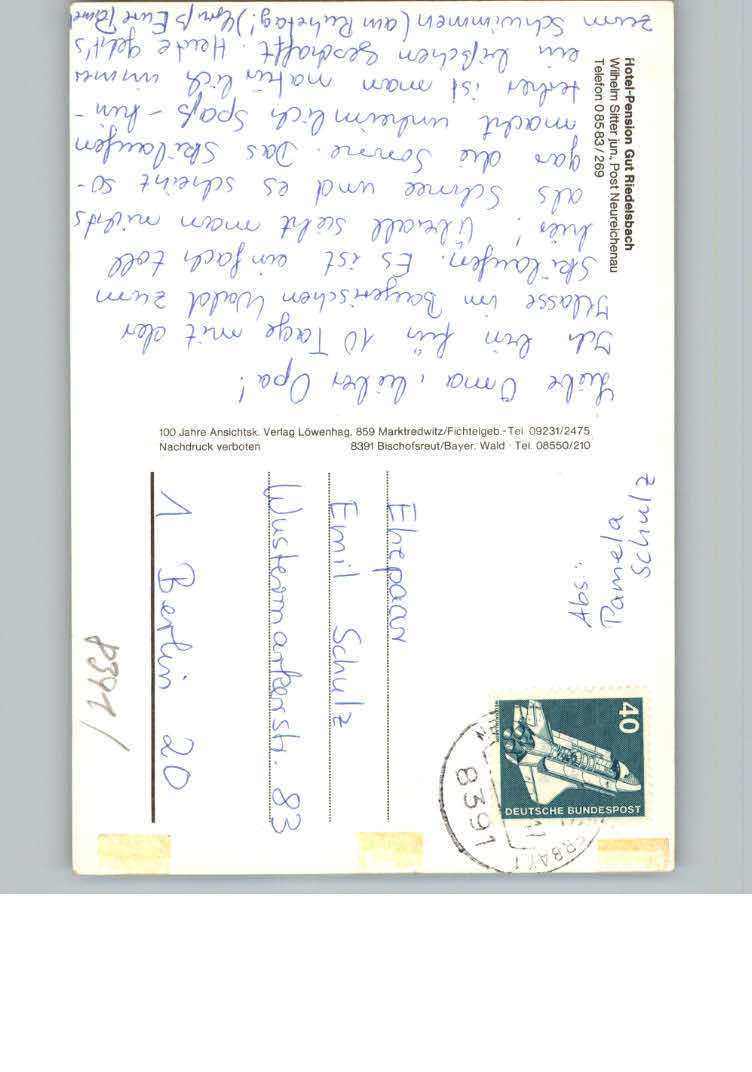 Hotel-Pension Gut Riedelsbach
Wilhelm Sitter jun., Post Neureichenau
Telefon 0 85 83 / 269
Liebe Oma, lieber Opa!
Ich bin für 10 Tage mit der
Klasse im Bayerischen Wald zum
Skilaufen. Es ist einfach toll
hier! Überall sieht man nichts
als Schnee und es scheint so-
gar die Sonne. Das Skilaufen
macht unheimlich Spaß - hin-
terher ist man natürlich immer
ein bißchen geschafft. Heute geht's
zum Schwimmen (am Ruhetag!) Gruß Eure
100 Jahre Ansichtsk. Verlag Löwenhag, 859 Marktredwitz/Fichtelgeb.-Tel. 09231/2475
Nachdruck verboten 8391 Bischofsreut/Bayer. Wald · Tel. 08550/210
Abs.:
Pamela
Schulz
40
DEUTSCHE BUNDESPOST
8391
Ehepaar
Emil Schulz
Wustermarkerstr. 83
1 Berlin 20